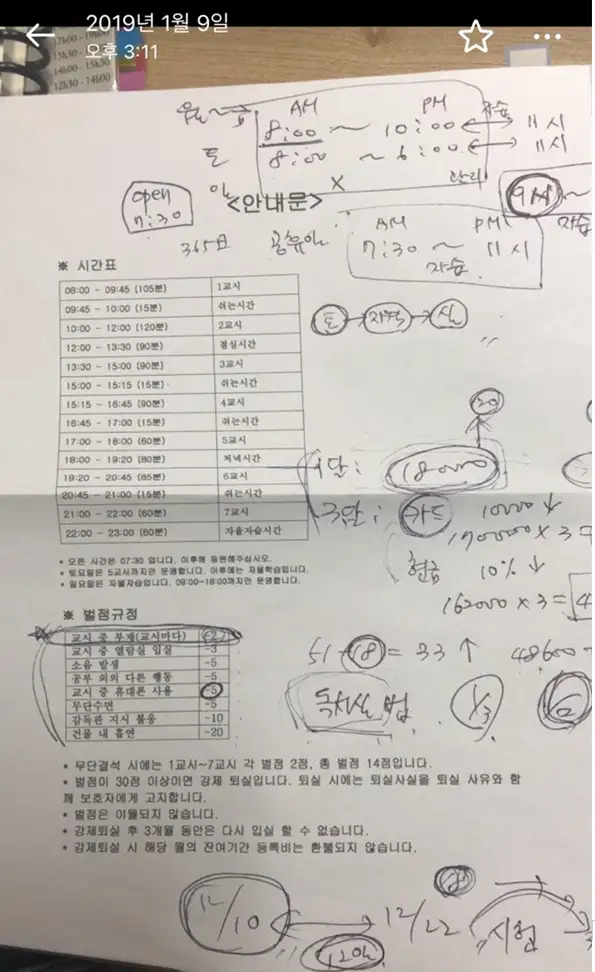 2019년 1월 9일
오후 3:11
17h00 - 19h
15h30 -
14h00 - 15h30
12h30 - 14h00
AM PM 자습
8:00 ~ 10:00 11시
토 8:00 ~ 6:00 11시
X 관리
open
7:30
<안내문>
9시 ~
자습
365日 공휴일
AM PM
7:30 ~ 11시
자습
※ 시간표
08:00 - 09:45 (105분) 1교시
09:45 - 10:00 (15분) 쉬는시간
10:00 - 12:00 (120분) 2교시
12:00 - 13:30 (90분) 점심시간
13:30 - 15:00 (90분) 3교시
15:00 - 15:15 (15분) 쉬는시간
15:15 - 16:45 (90분) 4교시
16:45 - 17:00 (15분) 쉬는시간
17:00 - 18:00 (60분) 5교시
18:00 - 19:20 (80분) 저녁시간
19:20 - 20:45 (85분) 6교시
20:45 - 21:00 (15분) 쉬는시간
21:00 - 22:00 (60분) 7교시
22:00 - 23:00 (60분) 자율자습시간
20
1달: 18000
카드 10000 ↓
170000 x 3 =
현금 10% ↓
162000 x 3 = 4
* 오픈 시간은 07:30 입니다. 이후에 등원해주십시오.
* 토요일은 5교시까지만 운영합니다. 이후에는 자율학습입니다.
* 일요일은 자율자습입니다. 09:00-18:00까지만 운영합니다.
※ 벌점규정
교시 중 부재(교시마다) -2
교시 중 열람실 입실 -3
소음 발생 -5
공부 외의 다른 행동 -5
교시 중 휴대폰 사용 -5
무단수면 -5
감독관 지시 불응 -10
건물 내 흡연 -20
51 - 18 = 33 ↑ 48600
1/3 6
* 무단결석 시에는 1교시~7교시 각 벌점 2점, 총 벌점 14점입니다.
* 벌점이 30점 이상이면 강제 퇴실입니다. 퇴실 시에는 퇴실사실을 퇴실 사유와 함
께 보호자에게 고지합니다.
* 벌점은 이월되지 않습니다.
* 강제퇴실 후 3개월 동안은 다시 입실 할 수 없습니다.
* 강제퇴실 시 해당 월의 잔여기간 등록비는 환불되지 않습니다.
12/10 12/22 시험
12일